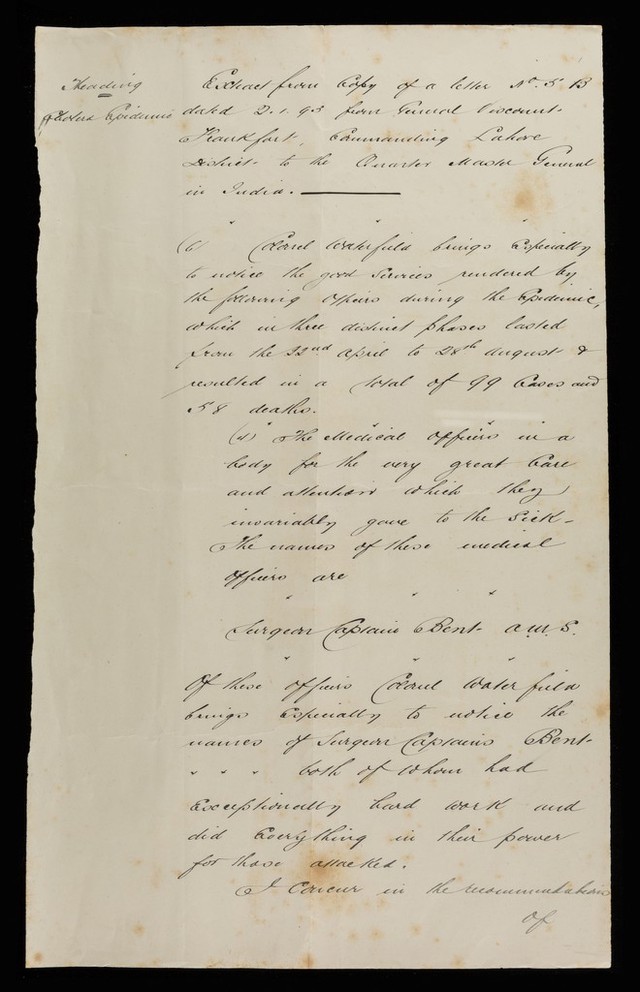 Heading
Cholera Epidemic
Extract from Copy of a letter No. 5 B
dated 2.1.93 from General Viscount
Frankfort, Commanding Lahore
District to the Quarter Master General
in India.
" " "
(6) Colonel Waterfield brings especially
to notice the good services rendered by
the following officers during the Epidemic,
which in three distinct phases lasted
from the 22nd April to 28th August &
resulted in a total of 99 Cases and
58 deaths.
" " "
The Medical officers in a
body for the very great Care
and attention which they
invariably gave to the sick -
The names of these medical
officers are
" " "
Surgeon Captain Bent A.M.S.
" " "
Of these officers Colonel Waterfield
brings especially to notice the
names of Surgeon Captains Bent
" " " both of whom had
Exceptionally hard work and
did everything in their power
for those attacked.
I Concur in the recommendations
of